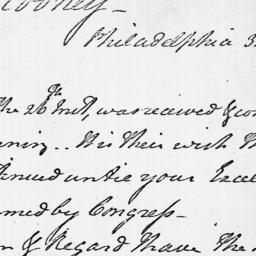 Rodney-
Philadelphia 3
The 26th Inst, was received & co
ning.. It is their wish th
tinued untill your Excel
rmed by Congress-
m & Regard I have The